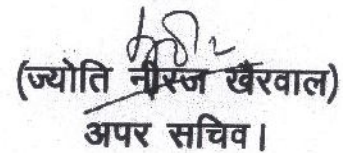 (ज्योति नीरज खैरवाल)
अपर सचिव।